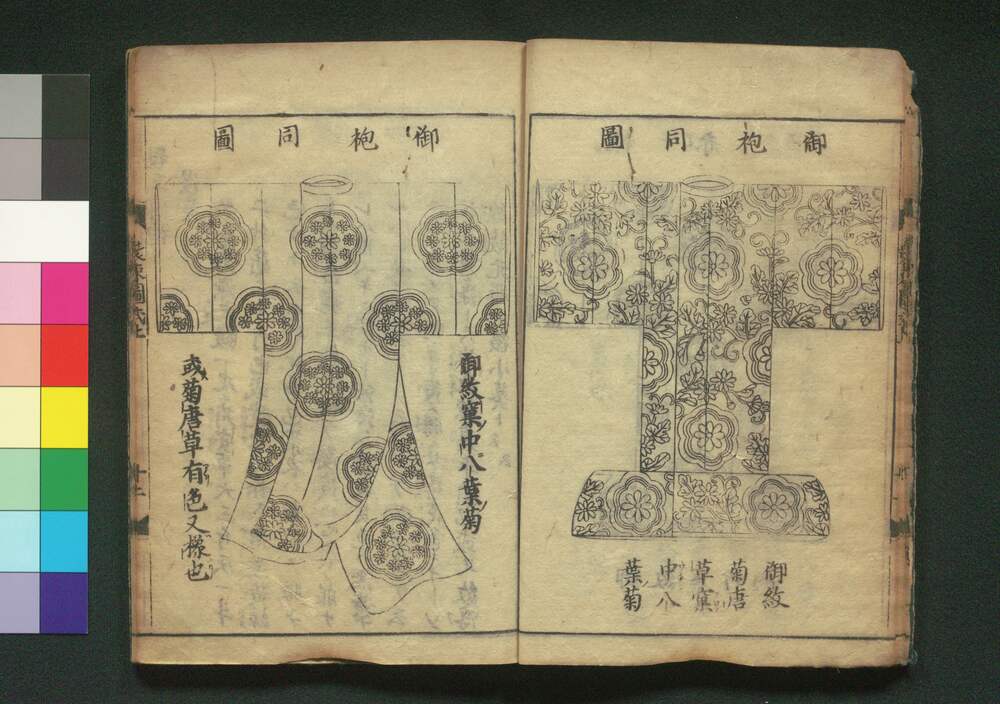 御袍同圖
御紋
菊唐
草窠
中八
葉菊
御袍同圖
御紋窠中八葉菊
或菊唐草有色又様也